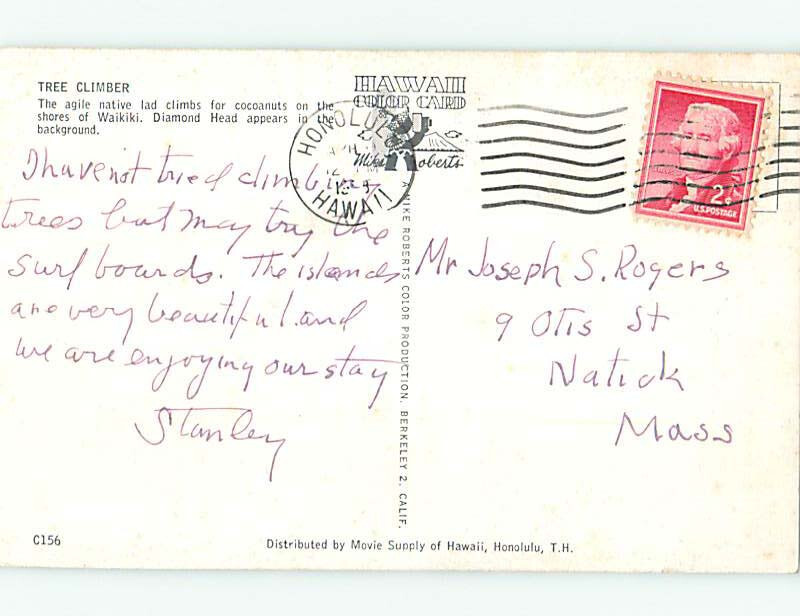 TREE CLIMBER
The agile native lad climbs for cocoanuts on the
shores of Waikiki. Diamond Head appears in the
background.
HAWAII
COLOR CARD
Mike Roberts
HONOLULU
HAWAII
2¢
U.S. POSTAGE
I have not tried climbing
trees but may try the
surf boards. The islands
are very beautiful and
we are enjoying our stay
Stanley
A MIKE ROBERTS COLOR PRODUCTION. BERKELEY 2, CALIF.
Mr Joseph S. Rogers
9 Otis St
Natick
Mass
C156
Distributed by Movie Supply of Hawaii, Honolulu, T.H.